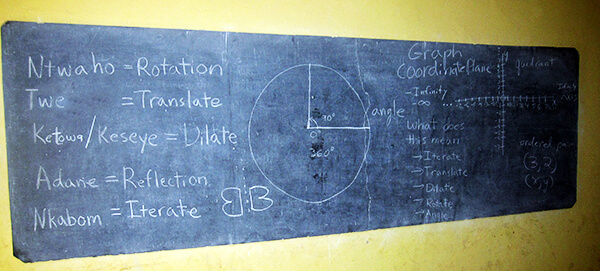 Ntwaho = Rotation
Twe = Translate
Ketowa/Keseye = Dilate
Adane = Reflection
Nkabom = Iterate
B:B
90°
0°
360°
angle
Graph
Coordinate Plane
-Infinity
-∞
What does
this mean
→ Iterate
→ Translate
→ Dilate
→ Rotate
→ Angle
quadrant
ordered pair
(3,2)
(x,y)